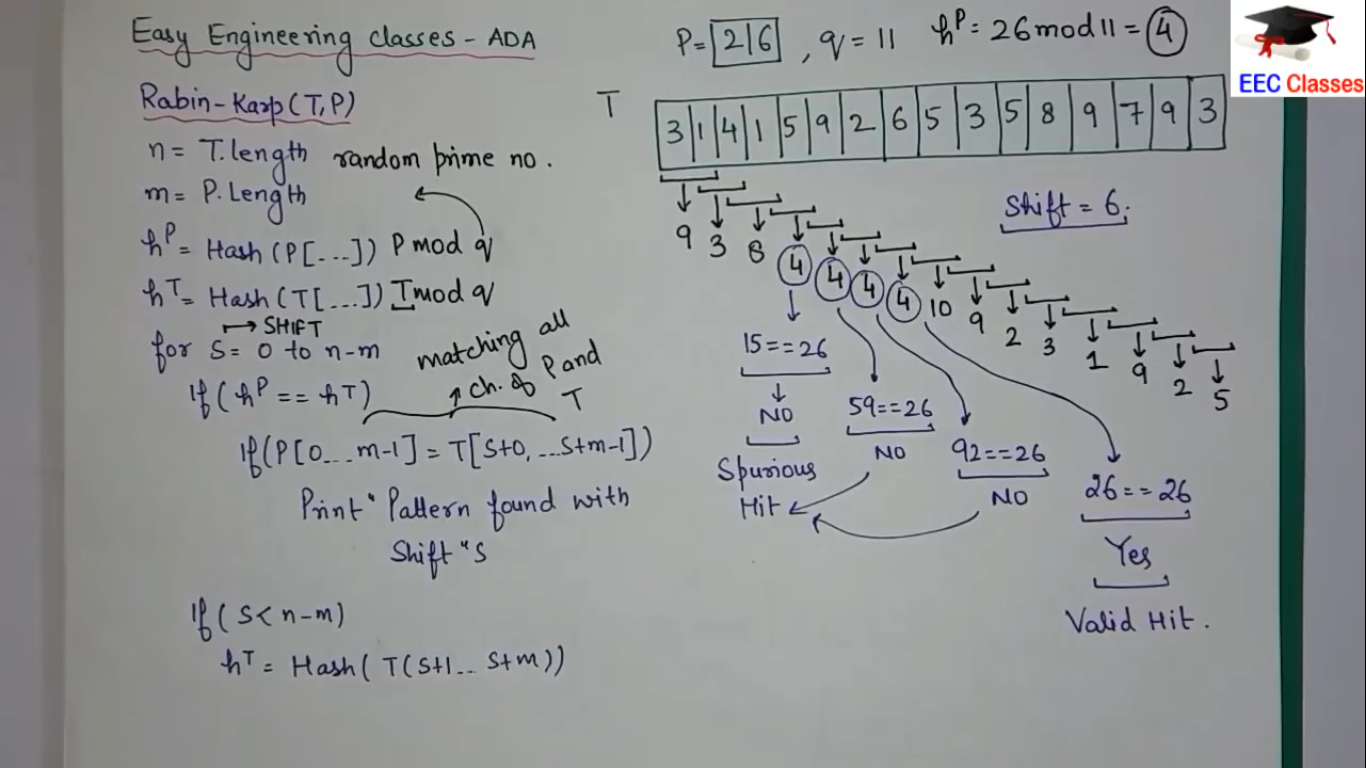 Easy Engineering classes - ADA
Rabin-Karp(T,P)
n = T.length random prime no.
m = P.Length
hᴾ = Hash (P[...]) P mod q
hᵀ = Hash (T[...]) T mod q
↦ SHIFT
for s = 0 to n-m
If ( hᴾ == hᵀ )
matching all
ch. of P and
T
If(P[0...m-1] = T[S+0, ...S+m-1])
Print " Pattern found with
Shift " S
If ( S < n-m)
hᵀ = Hash( T(S+1.. S+m))
P = 2 6 , q = 11 hᴾ = 26 mod 11 = 4
EEC Classes
T 3 1 4 1 5 9 2 6 5 3 5 8 9 7 9 3
Shift = 6.
9 3 8 4 4 4 4 10 9 2 3 1 9 2 5
15 == 26
NO
Spurious
Hit
59 == 26
NO
92 == 26
NO
26 == 26
Yes
Valid Hit.